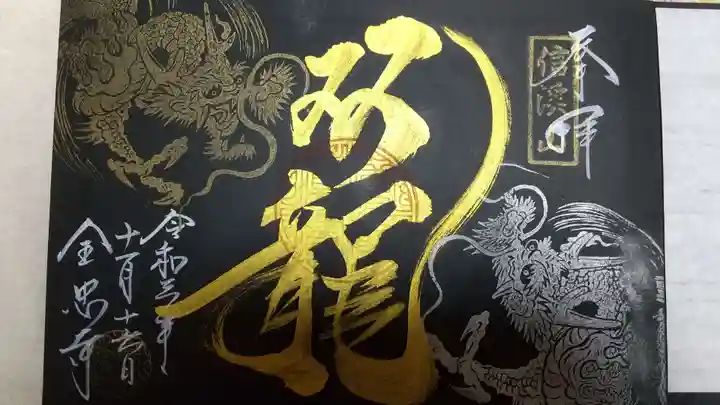 奉拝
信溪山
双龍
令和三年
十一月十六日
全忠寺